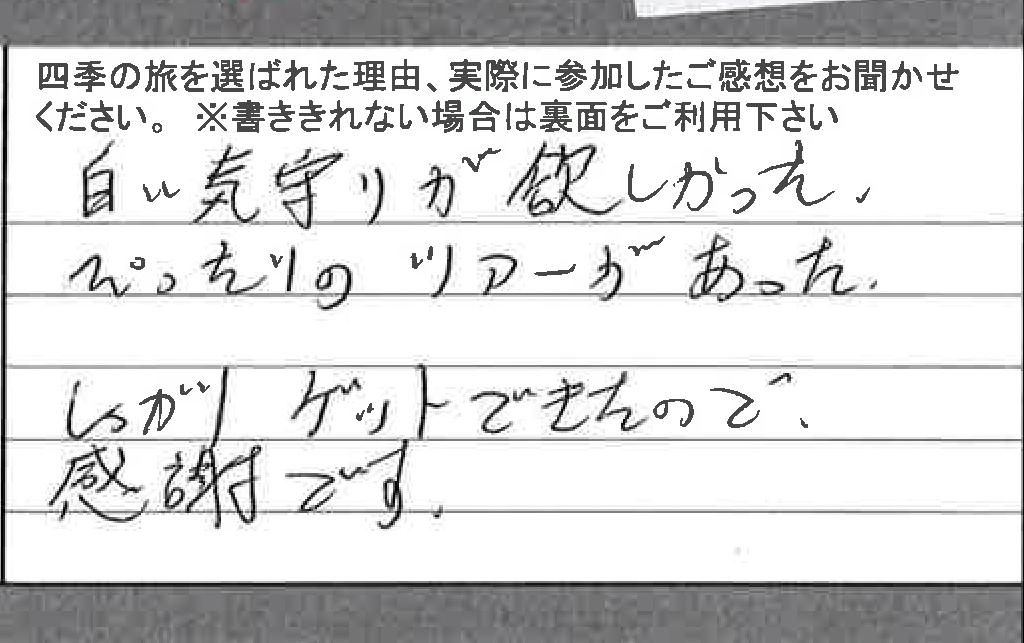 四季の旅を選ばれた理由、実際に参加したご感想をお聞かせ
ください。 ※書ききれない場合は裏面をご利用下さい
白い気守りが欲しかった、
ぴったりの ツアーが あった.
しっかり ゲットできたので、
感謝です.